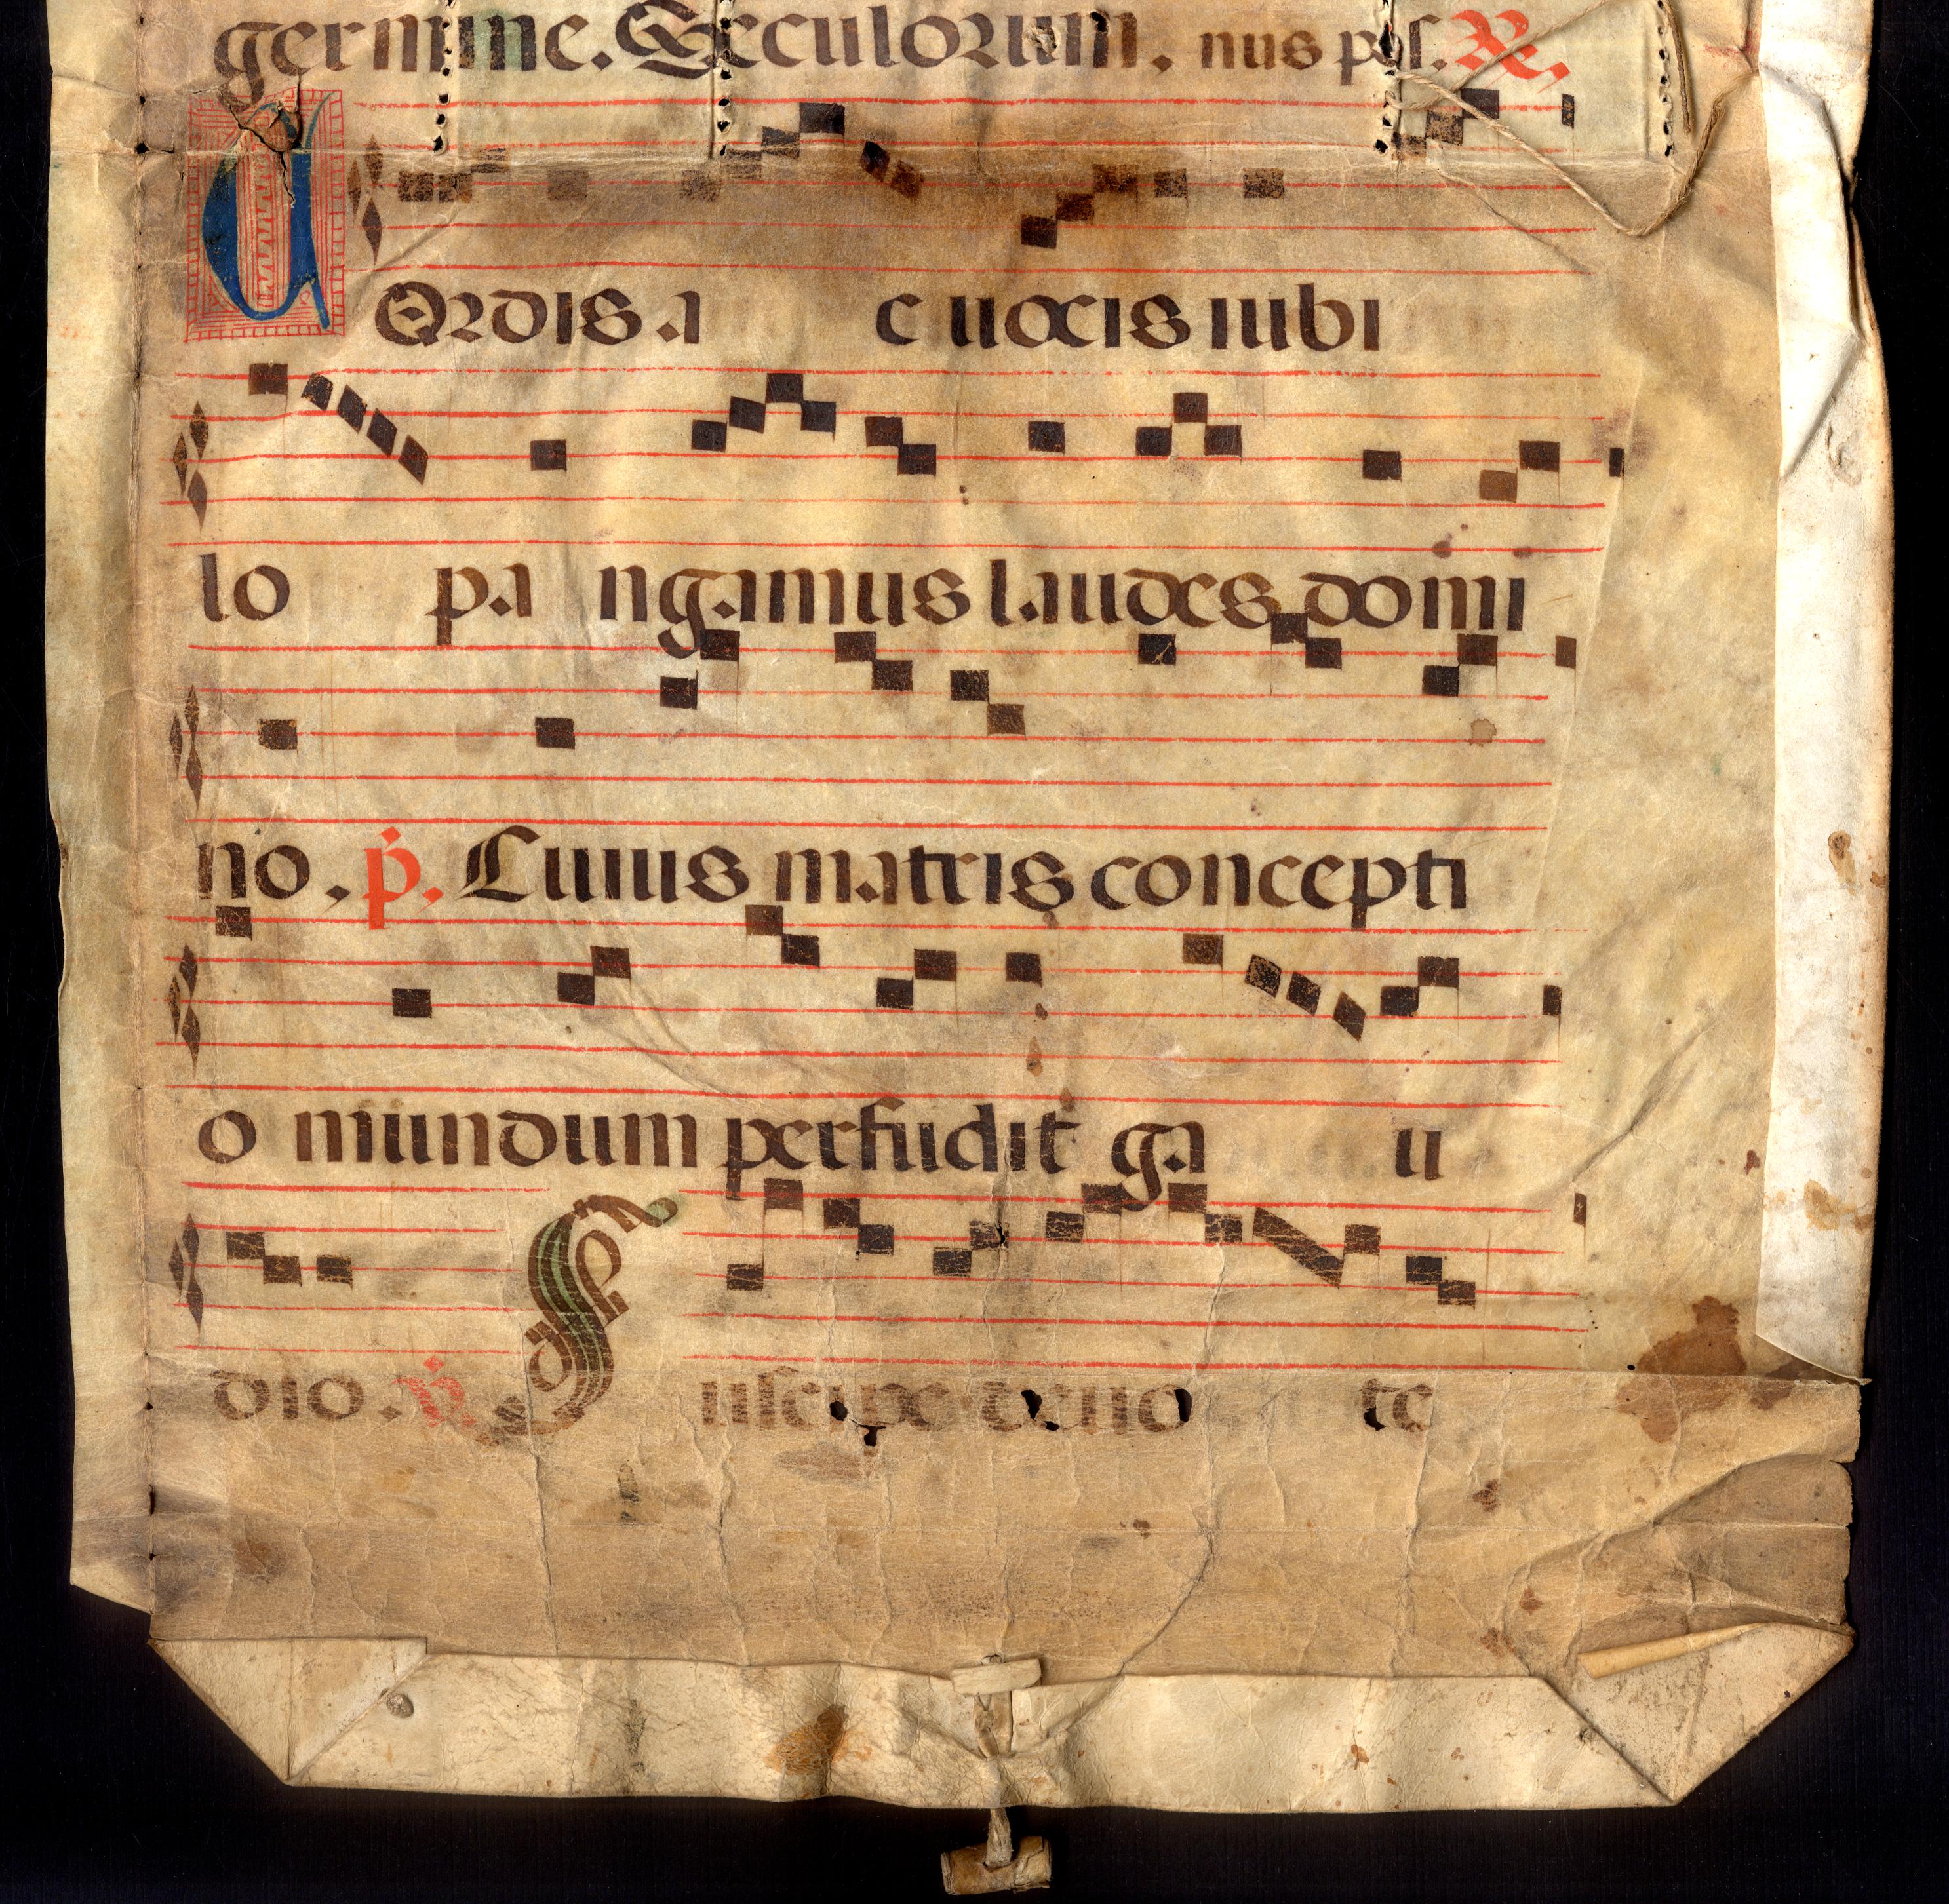 germine. Seculorum. nus pos. R.
CORDIS a c uocis iubi
lo pa ngamus laudes domi
no. p. Cuius matris concepti
o mundum perfudit ga u
dio. p. Suscipe deuo te